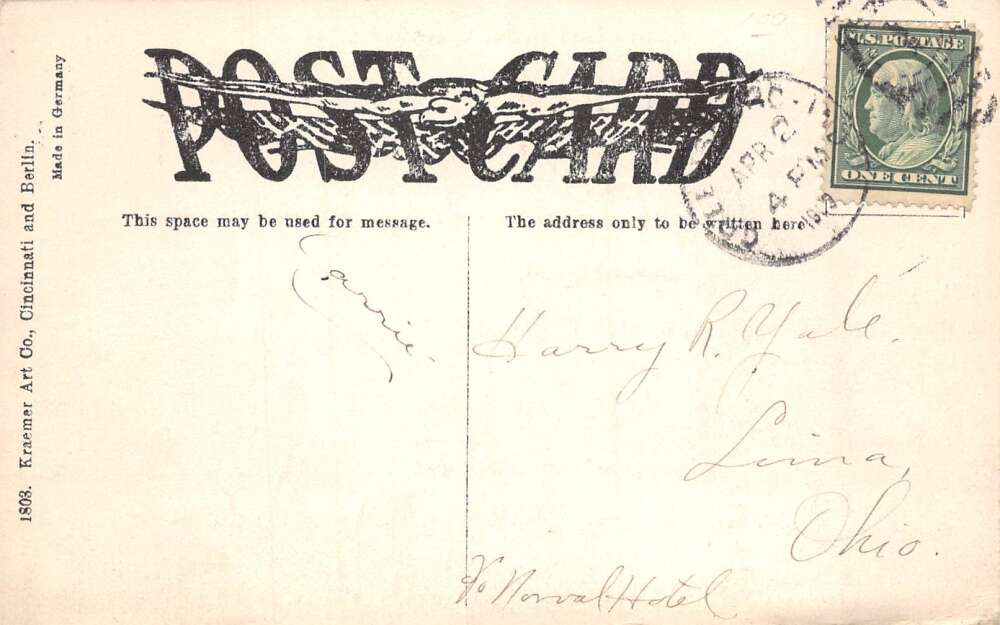 POST CARD
U.S. POSTAGE
ONE CENT
APR 2
4 PM
This space may be used for message.
The address only to be written here
Carrie.
Harry R. Yale.
Lima,
Ohio.
% Norval Hotel
1803. Kraemer Art Co., Cincinnati and Berlin.
Made in Germany